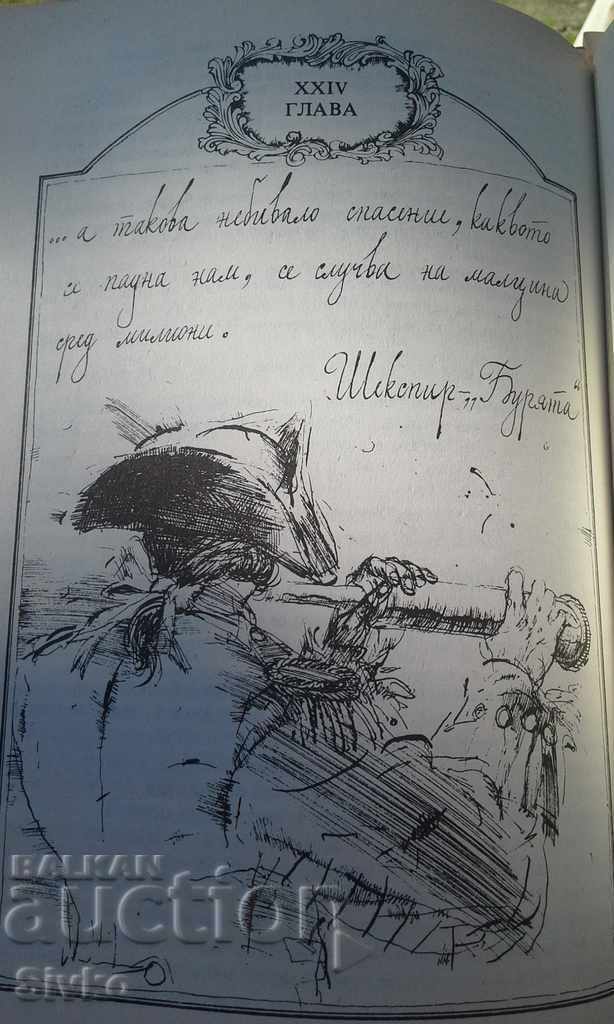 XXIV
ГЛАВА
...а такова небивало спасение, каквото
се падна нам, се случва на малцина
сред милиони.
Шекспир - „Бурята“
BALKAN
auction
Sivko